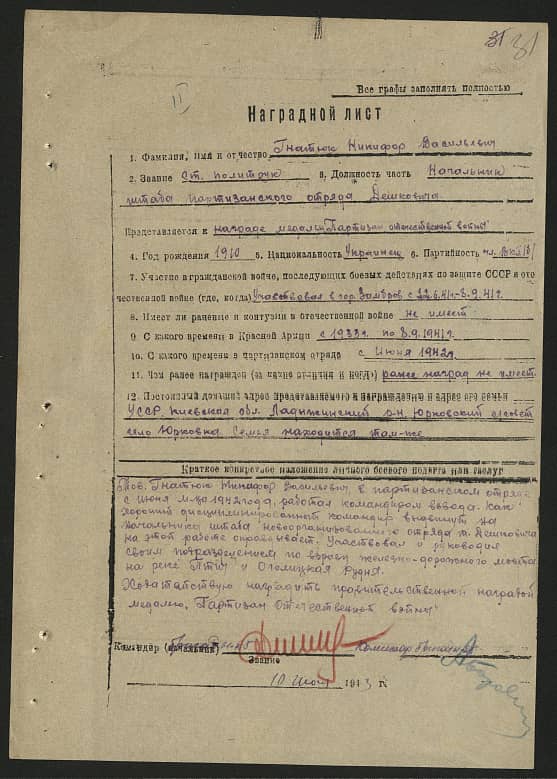 31 31
II
Все графы заполнять полностью
Наградной лист
1. Фамилия, имя и отчество Гнатюк Никифор Васильевич
2. Звание Ст. политрук 3. Должность часть Начальник
штаба партизанского отряда Дешковича.
Представляется к награде медали "Партизан отечественной войны"
4. Год рождения 1910 5. Национальность Украинец 6. Партийность чл. ВКП(б)
7. Участие в гражданской войне, последующих боевых действиях по защите СССР и оте
чественной войне (где, когда) Участвовал в гор. Замбров с 22.6.41г-8.9.41г
8. Имеет ли ранение и контузии в отечественной войне не имеет
9. С какого времени в Красной Армии с 1933г. по 8.9.1941г
10. С какого времени в партизанском отряде с Июня 1942г.
11. Чем ранее награжден (за какие отличия и когда) ранее наград не имеет.
12. Постоянный домашний адрес представляемого к награждению и адрес его семьи
УССР, Киевская обл. Ладыжинский р-н, Юрковский с/совет
село Юрковка Семья находится там-же
Краткое конкретное изложение личного боевого подвига или заслуг
Тов. Гнатюк Никифор Васильевич в партизанском отряде
с Июня м-ца 1942 года, работал командиром взвода. Как
хороший дисциплинированный командир выдвинут на
начальника штаба новоорганизованного отряда т. Дешковича
на этой работе оправдывает. Участвовал и руководил
своим подразделением по взрыву железно-дорожного моста
на реке Птичь и Оголицкая Рудня.
Ходатайствую наградить правительственной наградой
медалью "Партизан Отечественной войны"
Командер (начальник) Комиссар бригады
Звание
10 1943 г.